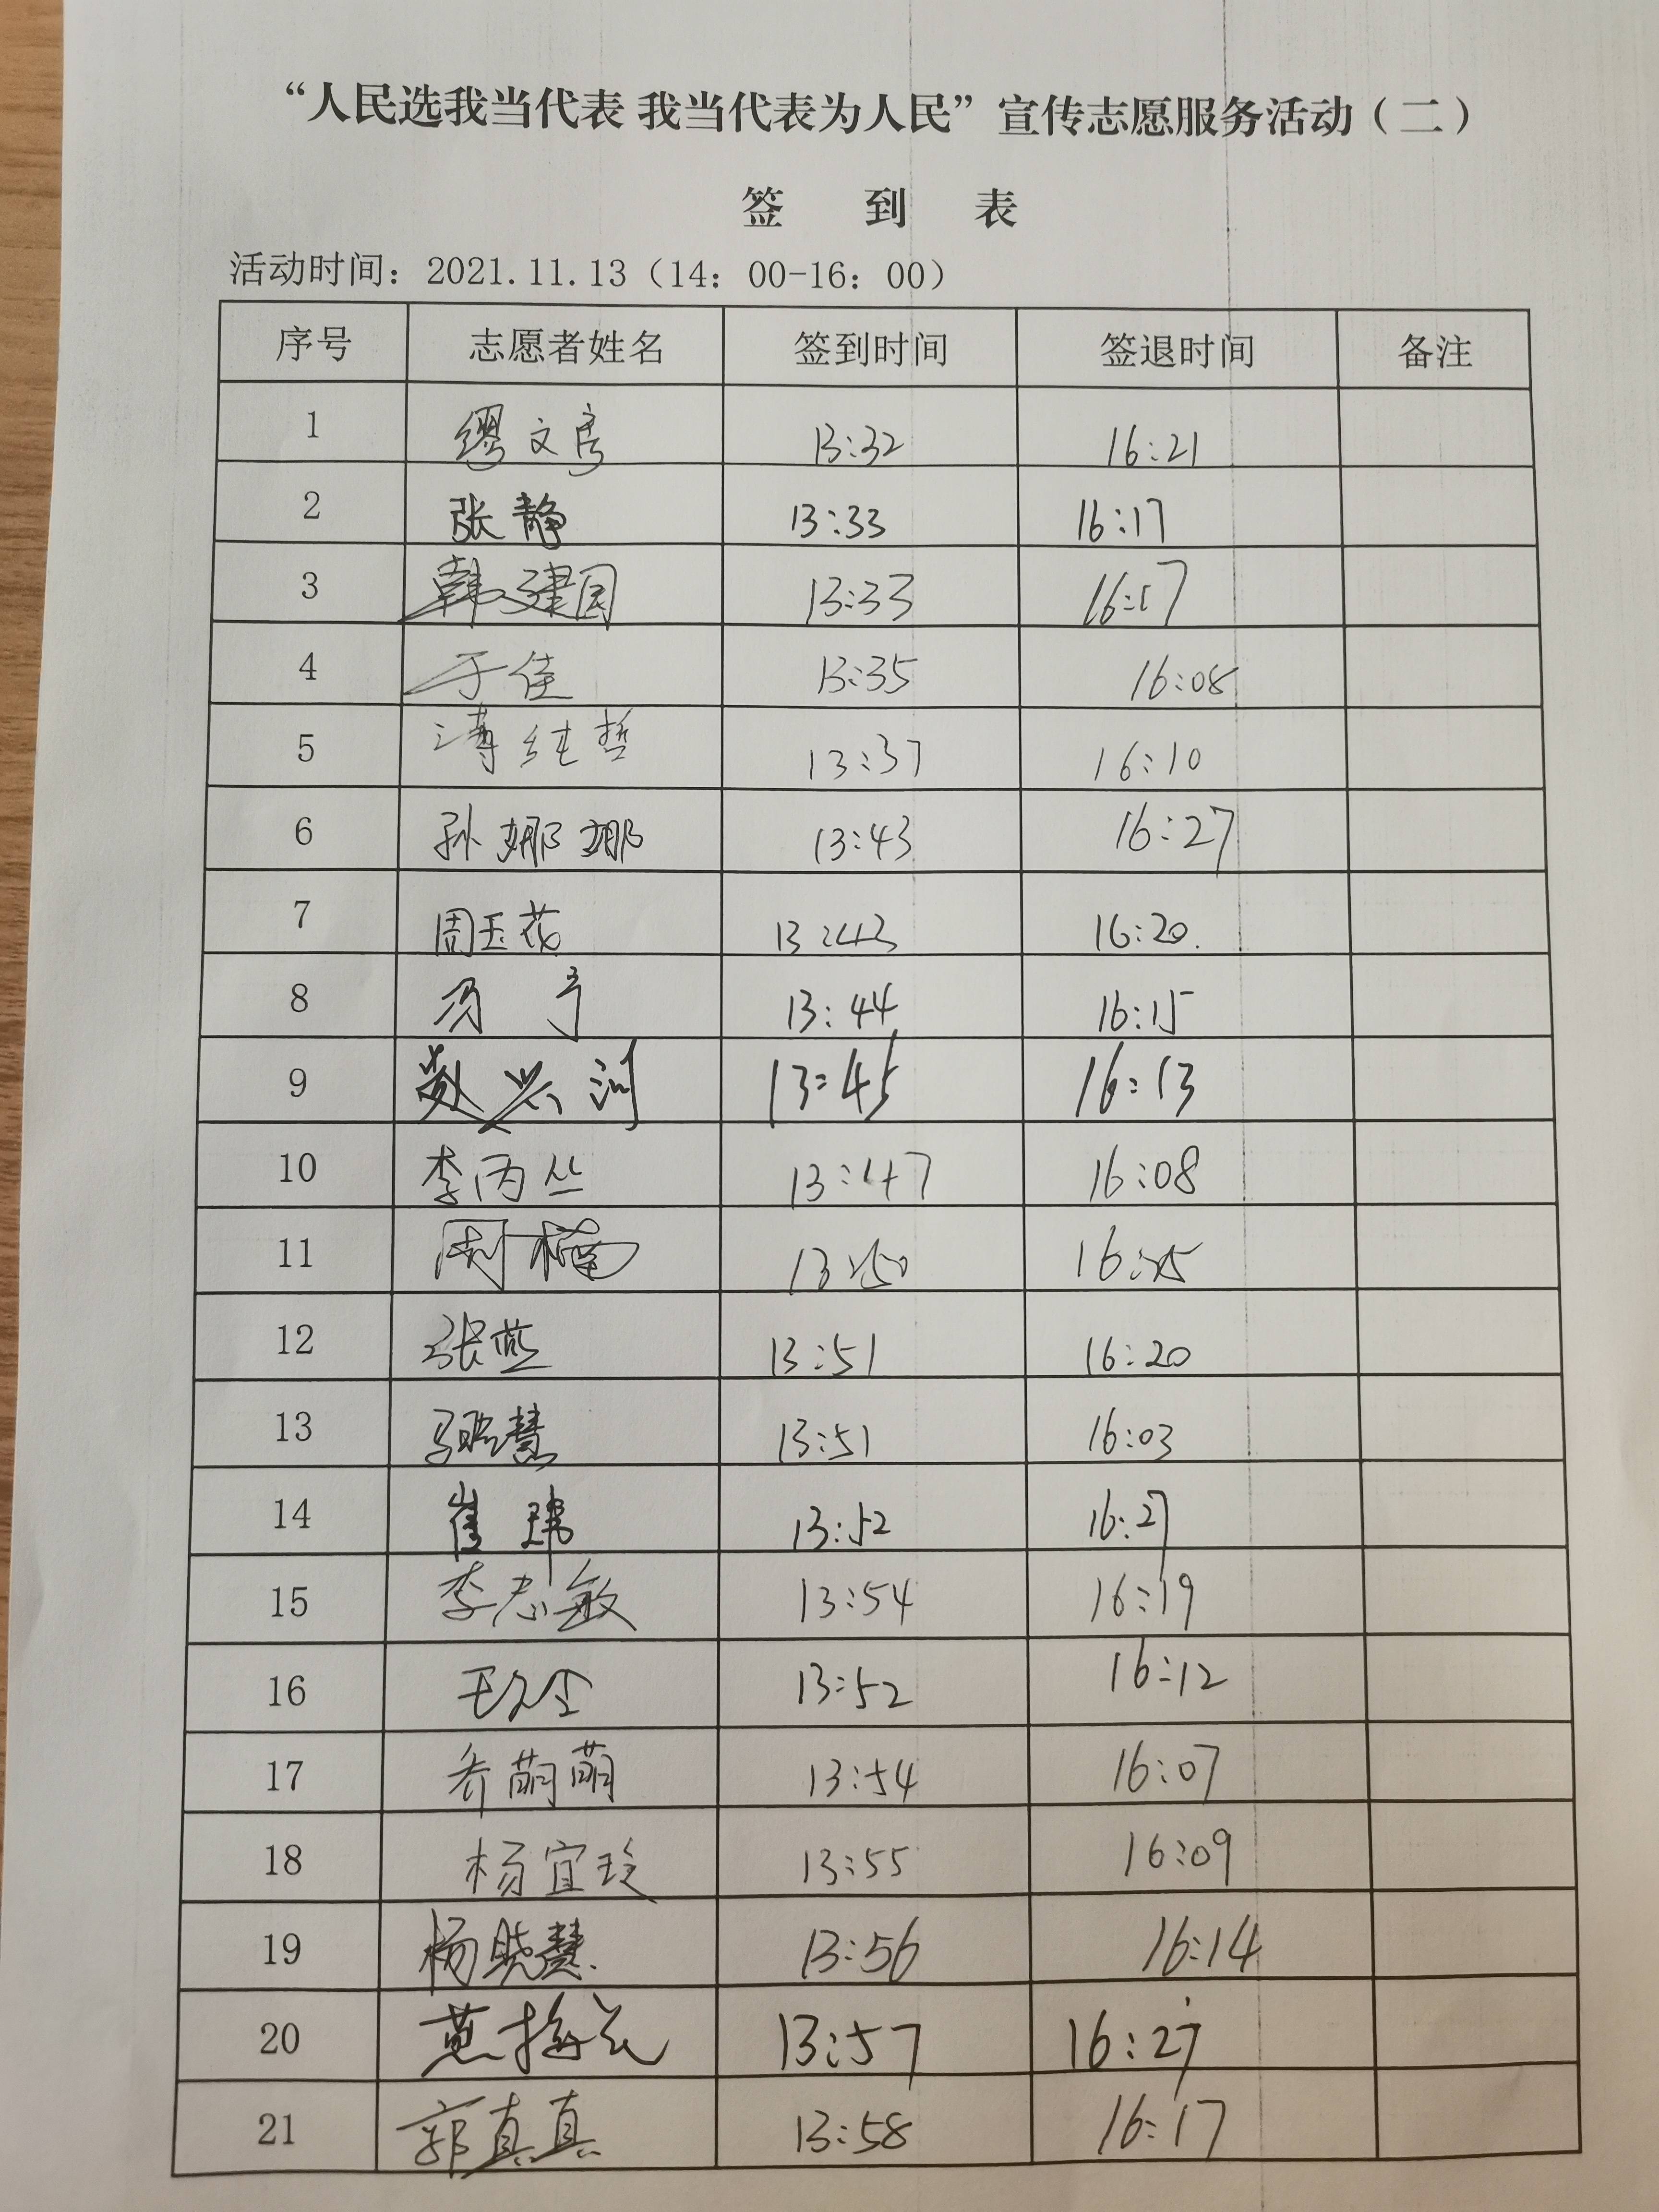 “人民选我当代表 我当代表为人民”宣传志愿服务活动（二）
签 到 表
活动时间：2021.11.13（14：00-16：00）
序号 志愿者姓名 签到时间 签退时间 备注
1 缪文房 13:32 16:21
2 张静 13:33 16:17
3 韩建国 13:33 16:17
4 于佳 13:35 16:08
5 纯哲 13:37 16:10
6 孙娜娜 13:43 16:27
7 周玉花 13:43 16:20
8 13:44 16:15
9 赵兴河 13:45 16:13
10 李丙丛 13:47 16:08
11 周楠 13:50
12 张燕 13:51 16:20
13 马晓慧 13:51 16:03
14 崔玮 13:52 16:27
15 李志敏 13:54 16:19
16 13:52 16:12
17 乔萌萌 13:54 16:07
18 杨宜玲 13:55 16:09
19 杨晓慧 13:56 16:14
20 13:57 16:27
21 郭真真 13:58 16:17